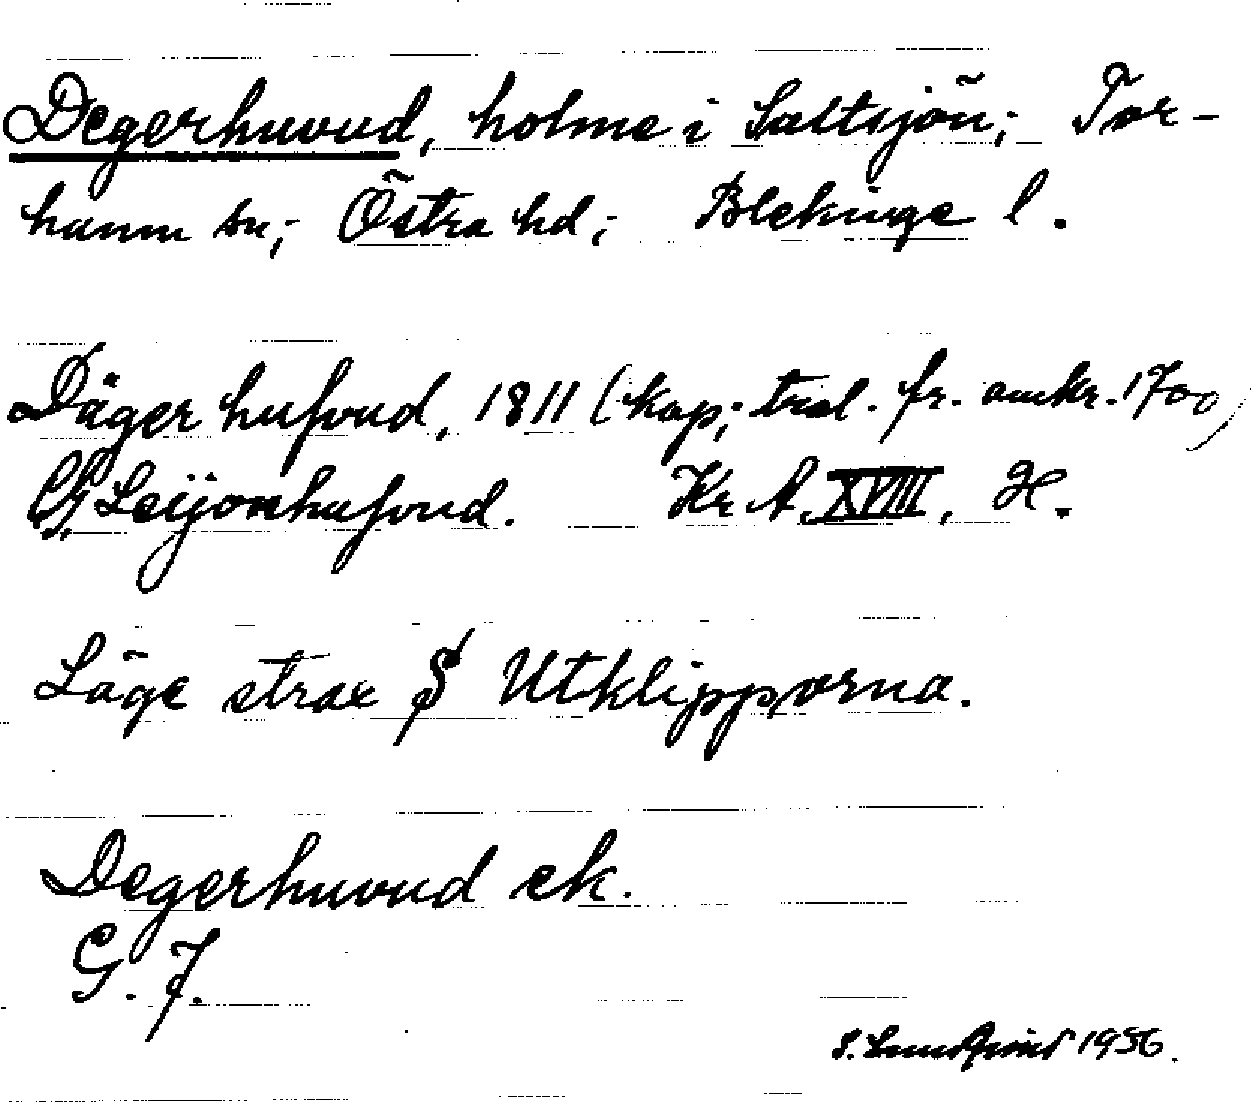 Degerhuvud, holme i Saltsjön; Tor-
hamn sn; Östra hd; Blekinge l.
Däger hufvud, 1811 (kop; trol. fr. omkr. 1700)
Leijonhufvud. Kr. A. XVIII, H.
Läge strax Utklipporna.
Degerhuvud ek.
G. J.
S. Lundqvist 1956.